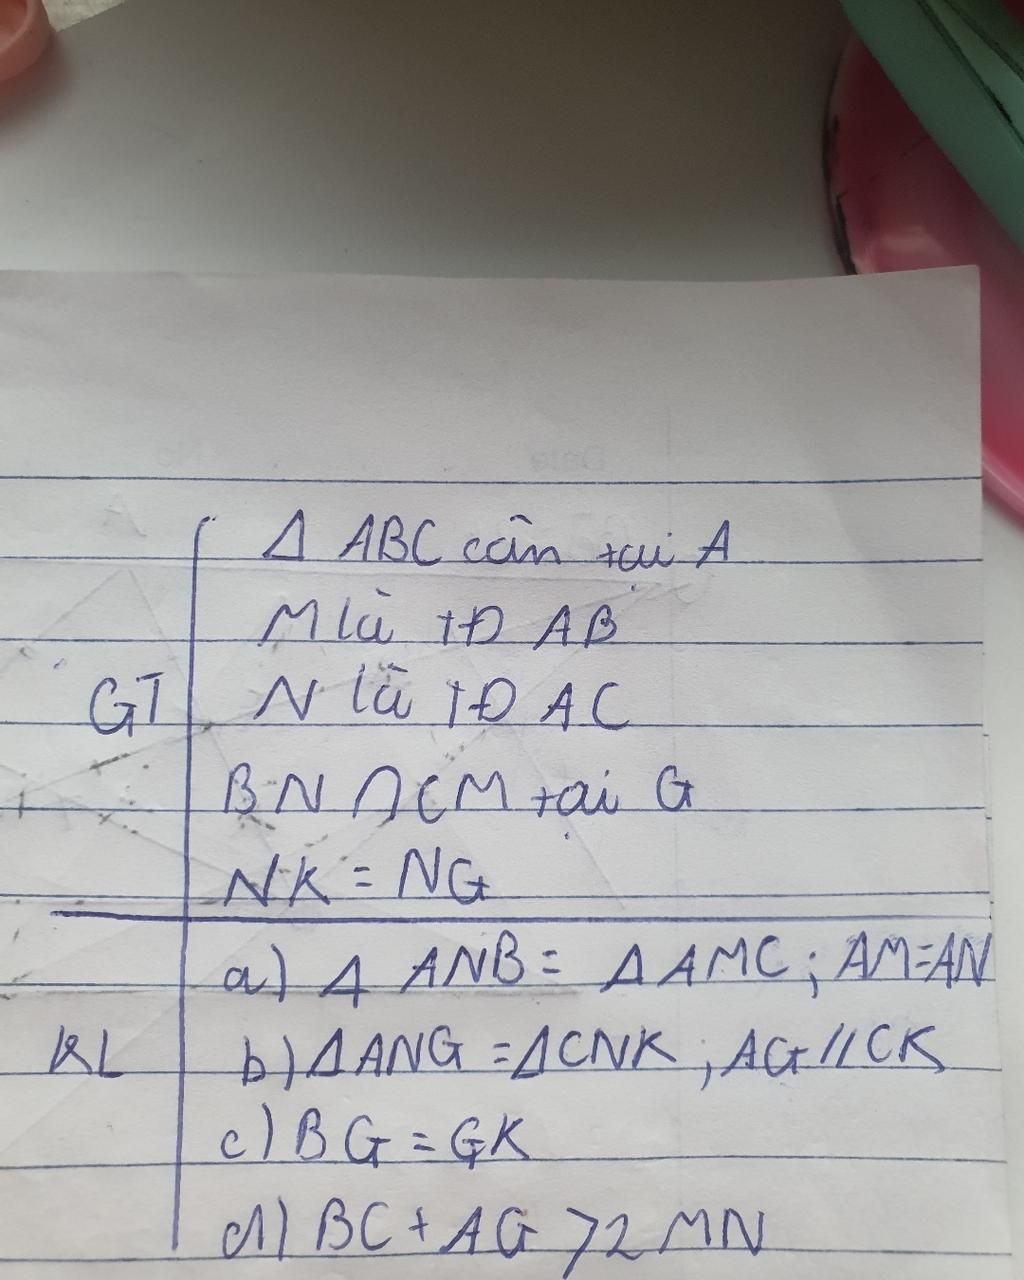 Δ ABC cân tại A
M là TĐ AB
GT N là TĐ AC
BN ∩ CM tại G
NK = NG
a) Δ ANB = Δ AMC ; AM=AN
KL b) ΔANG = ΔCNK ; AG // CK
c) BG = GK
d) BC + AG > 2 MN